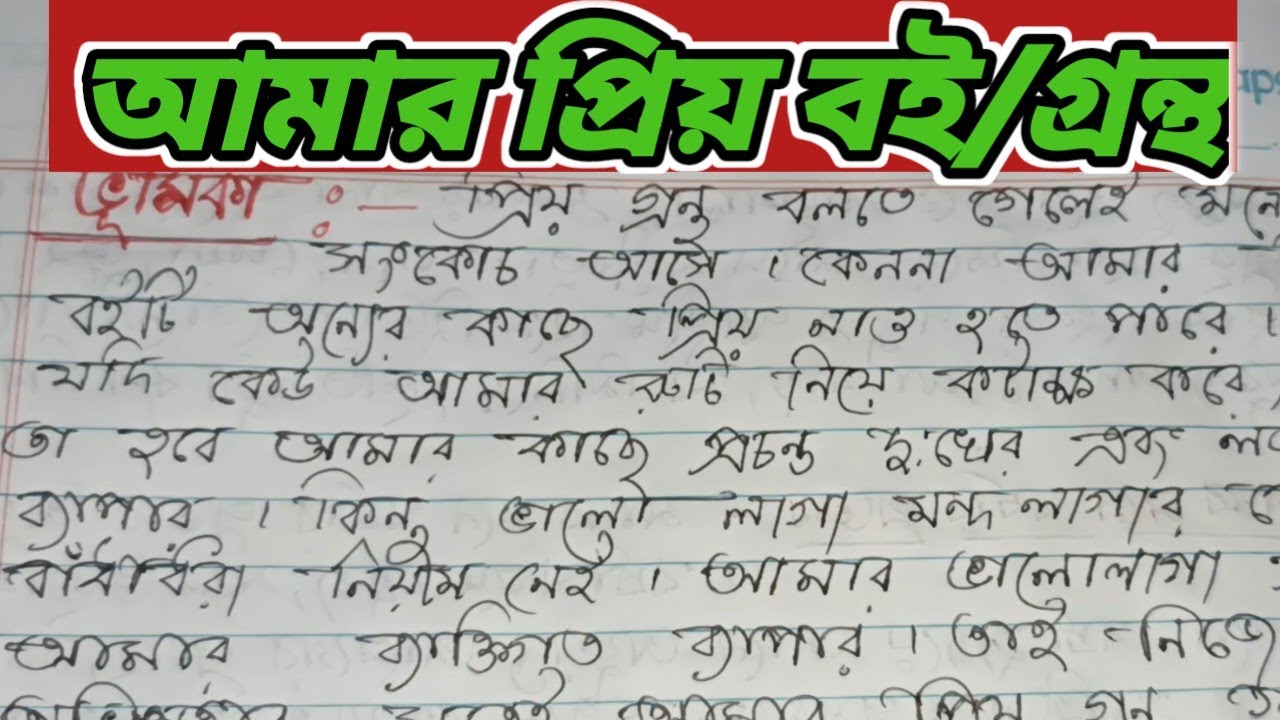 আমার প্রিয় বই/গ্রন্থ
ভূমিকা :— প্রিয় গ্রন্থ বলতে গেলেই মনে
সংকোচ আসে । কেননা আমার
বইটি অন্যের কাছে প্রিয় নাও হতে পারে ।
যদি কেউ আমার রুচি নিয়ে কটাক্ষ করে
তা হবে আমার কাছে প্রচন্ড দুঃখের এবং
ব্যাপার । কিন্তু ভালো লাগা মন্দ লাগার
বাঁধাধরা নিয়ম নেই । আমার ভালোলাগা
আমার ব্যক্তিগত ব্যাপার । তাই নিজে
আমার প্রিয়